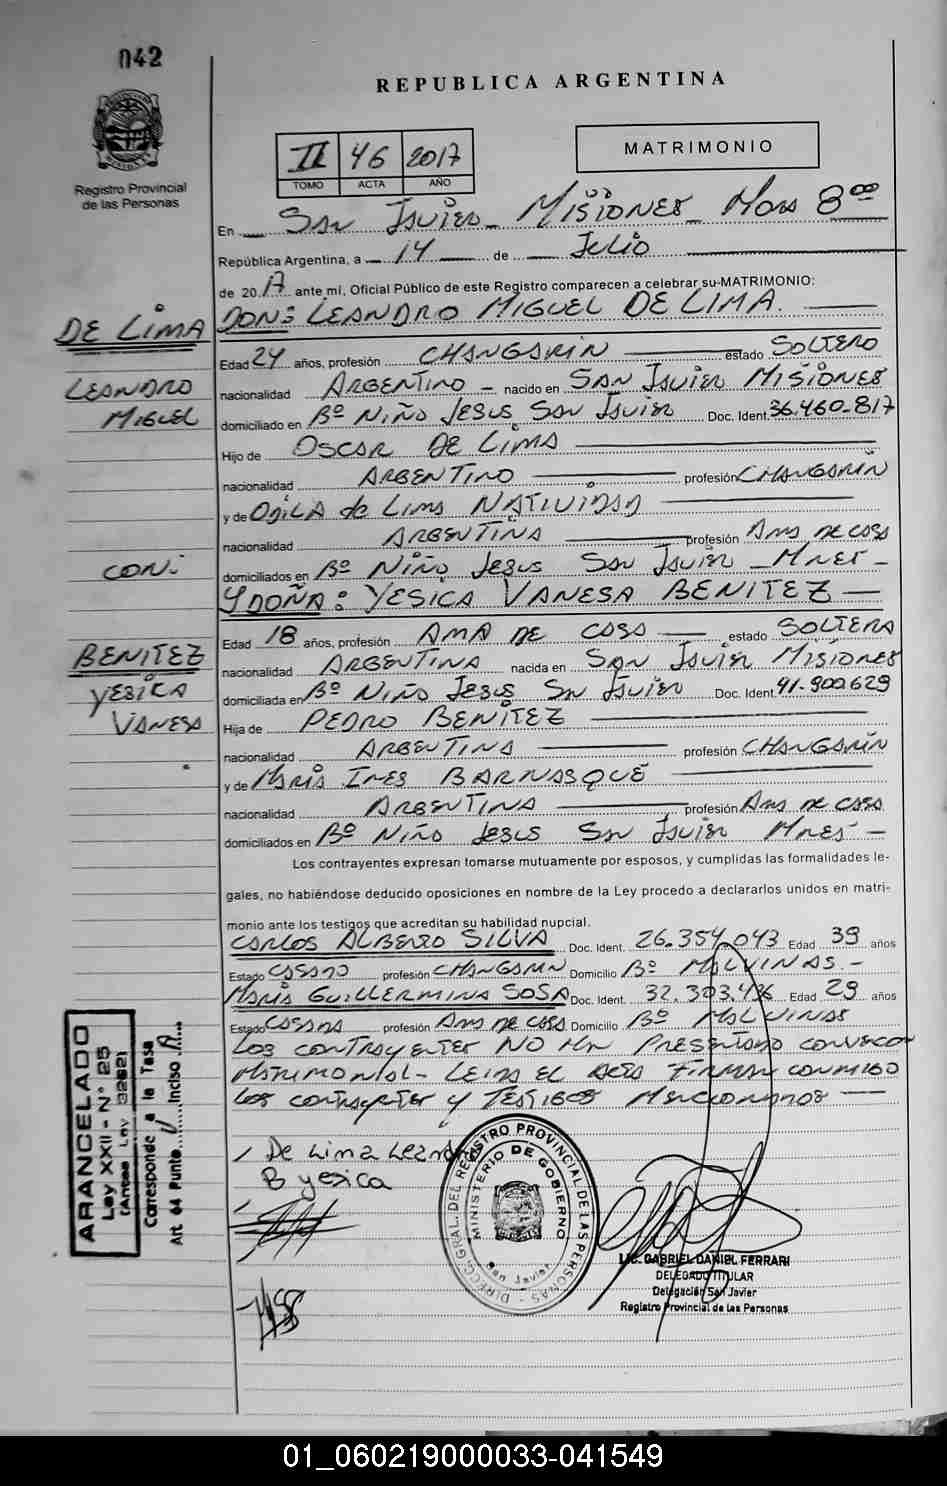 042
REPUBLICA ARGENTINA
Registro Provincial
de las Personas
II 46 2017
TOMO ACTA AÑO
MATRIMONIO
En San Javier Misiones Hora 8:00
República Argentina, a 14 de Julio
de 2017 ante mí, Oficial Público de este Registro comparecen a celebrar su MATRIMONIO:
DE LIMA
LEANDRO
MIGUEL
CON:
BENITEZ
YESICA
VANESA
DON: LEANDRO MIGUEL DE LIMA.
Edad 24 años, profesión CHANGARIN estado SOLTERO
nacionalidad ARGENTINO - nacido en SAN JAVIER MISIONES
domiciliado en Bº NIÑO JESUS SAN JAVIER Doc. Ident. 36.460.817
Hijo de OSCAR DE LIMA
nacionalidad ARGENTINO profesión CHANGARIN
y de ODILA de LIMA NATIVIDAD
nacionalidad ARGENTINA profesión AMA DE CASA
domiciliados en Bº NIÑO JESUS SAN JAVIER - MNES -
Y DOÑA: YESICA VANESA BENITEZ
Edad 18 años, profesión AMA DE CASA estado SOLTERA
nacionalidad ARGENTINA nacida en SAN JAVIER MISIONES
domiciliada en Bº NIÑO JESUS SAN JAVIER Doc. Ident. 41.900.629
Hija de PEDRO BENITEZ
nacionalidad ARGENTINA profesión CHANGARIN
y de MARIA INES BARNASQUE
nacionalidad ARGENTINA profesión AMA DE CASA
domiciliados en Bº NIÑO JESUS SAN JAVIER MNES -
Los contrayentes expresan tomarse mutuamente por esposos, y cumplidas las formalidades le-
gales, no habiéndose deducido oposiciones en nombre de la Ley procedo a declararlos unidos en matri-
monio ante los testigos que acreditan su habilidad nupcial.
CARLOS ALBERTO SILVA Doc. Ident. 26.354.043 Edad 39 años
Estado CASADO profesión CHANGARIN Domicilio Bº MALVINAS. -
MARIA GUILLERMINA SOSA Doc. Ident. 32.303.436 Edad 29 años
Estado CASADA profesión AMA DE CASA. Domicilio Bº MALVINAS
LOS CONTRAYENTES NO HAN PRESENTADO
MATRIMONIAL - LEIDA EL ACTA FIRMAN CONMIGO
LOS CONTRAYENTES Y TESTIGOS MENCIONADOS
De Lima
B yesica
DIRECC. GRAL. DEL REGISTRO PROVINCIAL DE LAS PERSONAS
MINISTERIO DE GOBIERNO
San Javier
LIC. GABRIEL DANIEL FERRARI
DELEGADO TITULAR
Delegación San Javier
Registro Provincial de las Personas
ARANCELADO
Ley XXII - N° 25
(Antes Ley 3262)
Corresponde a la Tasa
Art. 64 Punto Inciso A
01_060219000033-041549